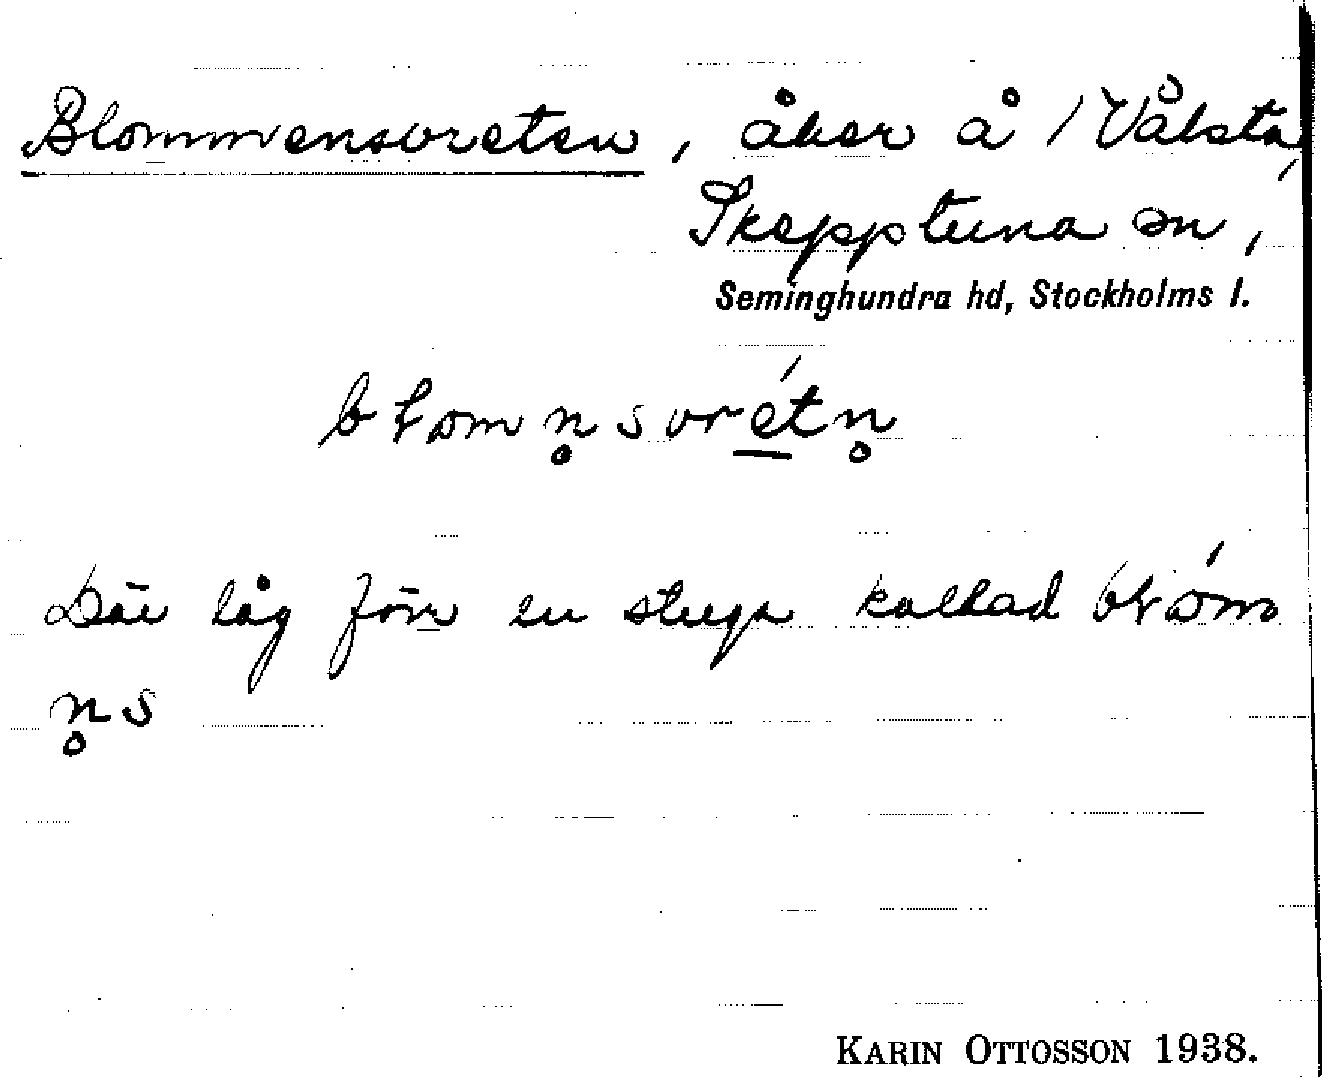 Blommensvreten, åker å 1 Vålsta,
Skepptuna sn,
Seminghundra hd, Stockholms l.
blomn̥svrétn̥
Där låg förr en stuga kallad blóm
n̥s
KARIN OTTOSSON 1938.